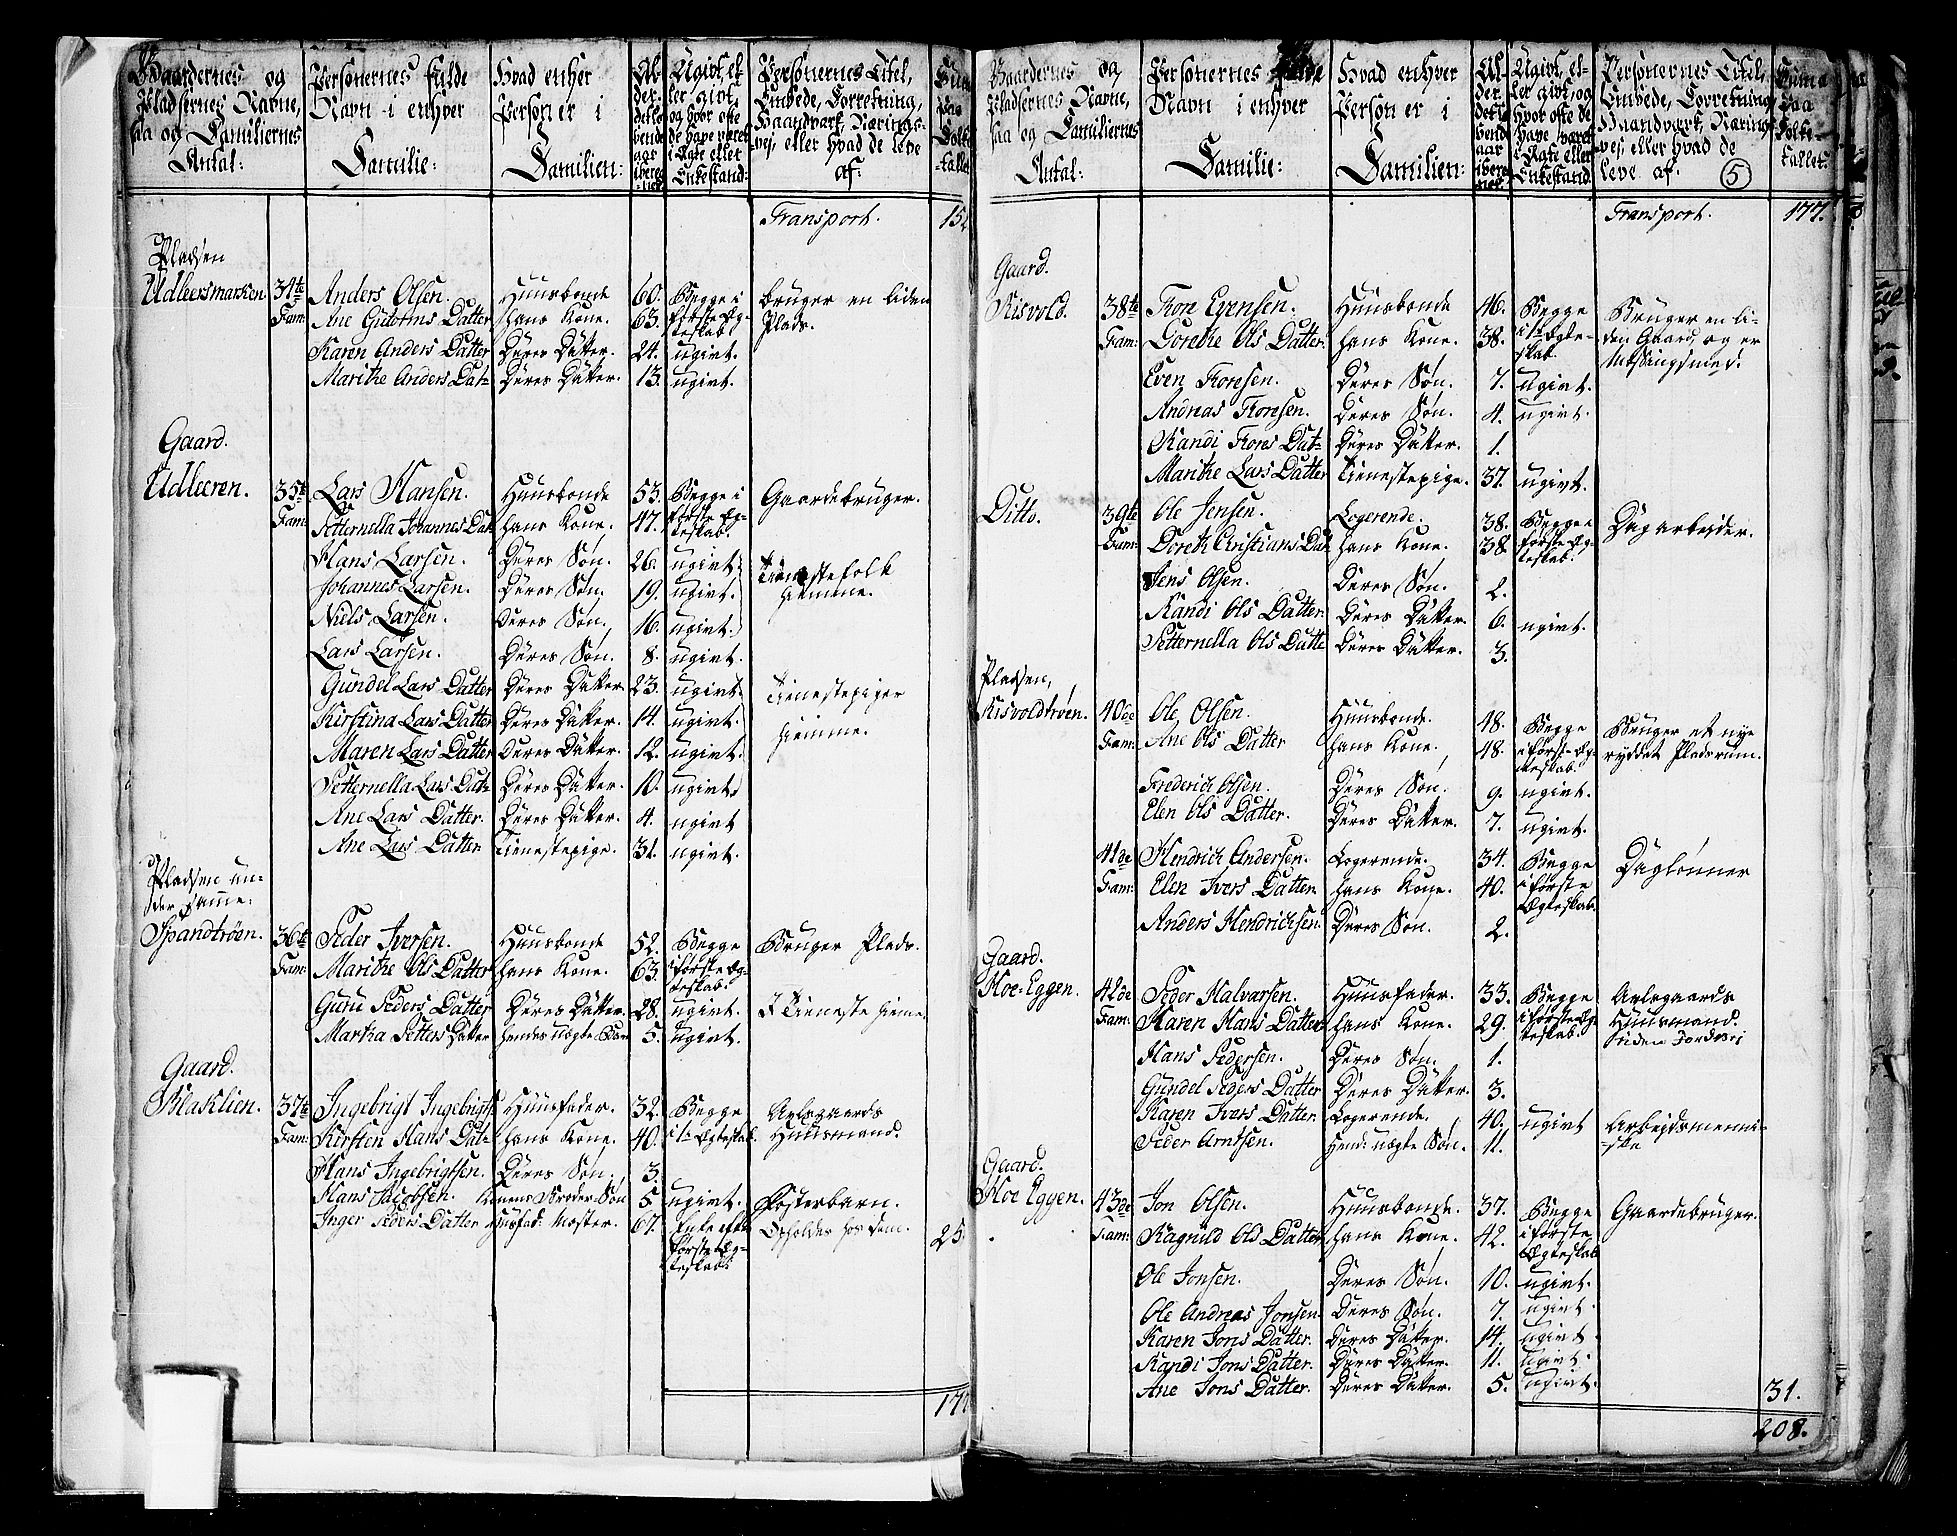 Gaardernes og Personernes fulde Hvad enhver Al- Ugivt, el- Personernes Titel, Sum̅a
Pladsernes Navne, Navn i enhver Person er i der ler givt, Embede, Forretning, paa
saa og Familiernes Familie: Familien: det lø- og hvor ofte Haandværk, Nærings- Folke-
Antal: bende aar de have været i Ægte eller Enkestand: vej, eller hvad de leve af: tallet
Transport.
Pladsen
Udleersmarken 34te Anders Olsen. Huusbonde 60. Begge i bruger en liden
Fam: Ane Guttorms Datter hans Kone. 63. første Æg- Plads.
teskab
Karen Anders Datter Deres Datter. 24. ugivt.
Marithe Anders Dat- Deres Datter. 13. ugivt.
Gaard.
Udleeren. 35te Lars Hansen. Huusbonde 53. Begge i Gaardebruger.
Fam: Petternella Johannes Dat hans Kone. 47. første Æg-
teskab.
Hans Larsen. Deres Søn. 26. ugivt. Tienestefolk
Johannes Larsen. Deres Søn. 19. ugivt. hiemme.
Niels Larsen. Deres Søn. 16. ugivt.
Lars Larsen. Deres Søn. 8. ugivt.
Gundel Lars Datter Deres Datter. 23. ugivt. Tienestepiger
Kirstina Lars Datter Deres Datter. 14. ugivt. hiemme.
Maren Lars Datter Deres Datter. 12. ugivt.
Petternella Lars Dat- Deres Datter. 10. ugivt
Ane Lars Datter. Deres Datter. 4. ugivt
Ane Lars Datter Tienestepige. 31. ugivt.
Pladsen un-
der Sam̅e:
Spandtrøen. 36te Peder Iversen. Huusbonde 52. Begge Bruger Plads.
Fam: Marithe Ols Datter hans Kone. 63. i første Æg-
teskab.
Guru Peders Datter Deres Datter. 28. ugivt. I Tieneste hiem̅e
Martha Petters Datter hendes uægte Barn 5. ugivt.
Gaard.
Blaklien. 37te Ingebrigt Ingebrigts Huusfader. 32. Begge Avlsgaards
Fam: Kirsten Hans Dat- hans Kone. 40. i 1te Ægteskab. Huusmand.
Hans Ingebrigtsen. Deres Søn. 3.
Hans Jacobsen. Konens Broder-Søn 5. ugivt. Fosterbarn.
Inger Peders Datter Huusfad: Moster. 67. Enke efter Opholdes hos dem. 25.
første Æg-
teskab

Gaardernes og Personernes Hvad enhver Al- Ugivt, el- Personernes Titel, Sum̅a
Pladsernes Navne, Navn i enhver Person er i der ler givt, og Embede, Forretning, paa
saa og Familiernes Familie: Familien: det lø- hvor ofte de Haandværk, Nærings- Folke-
Antal: bende aar have været i Ægte eller Enkestand. vej eller hvad de leve af. 5 tallet:
Transport. 177.
Gaard.
Risvold. 38te Tron Evensen. Huusbonde 46. Begge Bruger en li-
Fam: Gorethe Ols Datter. hans Kone. 38. i 1te Ægte- den Gaard, og er
skab. Messingsmed.
Even Tronsen. Deres Søn. 7. ugivt.
Andreas Tronsen. Deres Søn. 4. ugivt.
Randi Trons Dat- Deres Datter. 1.
Marithe Lars Datter Tienestepige. 37. ugivt.
Ditto. 39te Ole Jensen. Logerende. 38. Begge i Dagarbeider.
Fam: Doreth Christians Dat hans Kone. 38. første Æg-
teskab.
Jens Olsen. Deres Søn. 2.
Randi Ols Datter. Deres Datter. 6. ugivt.
Petternella Ols Datte Deres Datter. 3.
Pladsen,
Risvoldtrøen. 40de Ole Olsen. Huusbonde. 48. Begge Bruger et nye
Fam: Ane Ols Datter hans Kone. 48. i først- Æg- ryddet Pladsrum.
teskab.
Frederich Olsen. Deres Søn. 9. ugivt.
Elen Ols Datter. Deres Datter. 7. ugivt.
41de Hendrich Andersen. Logerende. 34. Begge Daglønner
Fam: Elen Ivers Datter hans Kone. 40. i første
Ægteskab.
Anders Hendrichsen Deres Søn. 2.
Gaard.
Moe-Eggen. 42de Peder Halvorsen. Huusfader. 33. Begge Avlsgaards
Fam: Karen Hans Datter hans Kone. 29. i første Æg- Huusmand.
teskab. uden Jordvei
Hans Pedersen. Deres Søn. 1.
Gundel Peders Datter Deres Datter. 3.
Karen Ivers Datter. Logerende. 40. ugivt Arbejdsmenni-
Peder Arntsen. Hend: uægte Søn. 11. -ske
Gaard.
Moe Eggen. 43de Jon Olsen. Huusbonde. 37. Begge Gaardebruger.
Fam: Ragnild Ols Datter hans Kone. 42. i første
Ægteskab
Ole Jonsen. Deres Søn. 10. ugivt.
Ole Andreas Jonsen. Deres Søn. 7. ugivt.
Karen Jons Datter. Deres Datter. 14. ugivt
Randi Jons Datter. Deres Datter. 11. ugivt.
Ane Jons Datter. Deres Datter. 5. ugivt. 31.
208.